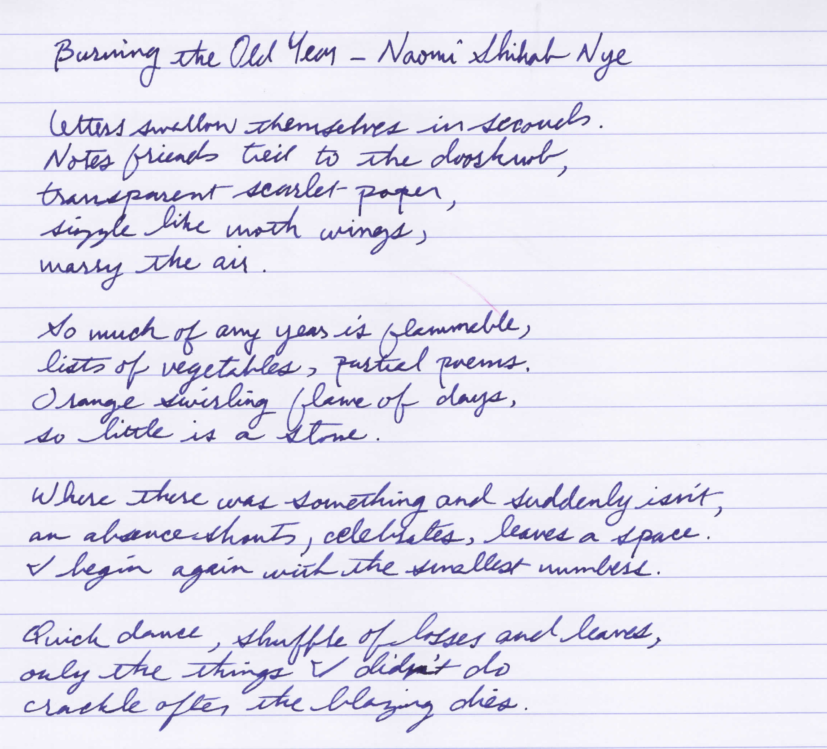 Burning the Old Year – Naomi Shihab Nye
Letters swallow themselves in seconds.
Notes friends tied to the doorknob,
transparent scarlet paper,
sizzle like moth wings,
marry the air.
So much of any year is flammable,
lists of vegetables, partial poems.
Orange swirling flame of days,
so little is a stone.
Where there was something and suddenly isn't,
an absence shouts, celebrates, leaves a space.
I begin again with the smallest numbers.
Quick dance, shuffle of losses and leaves,
only the things I didn't do
crackle after the blazing dies.